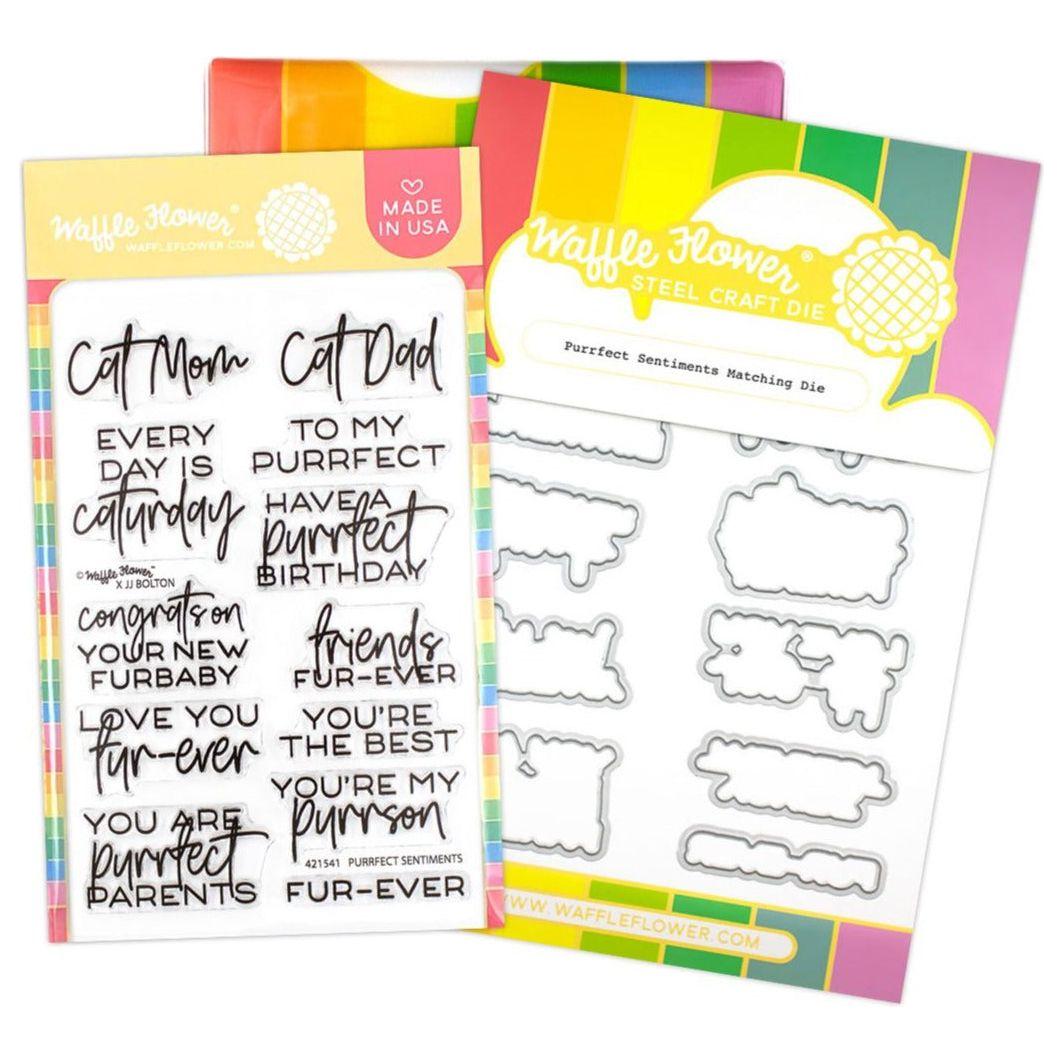 Waffle Flower®
WAFFLEFLOWER.COM
MADE
IN USA
Cat Mom
Cat Dad
EVERY
DAY IS
caturday
TO MY
PURRFECT
HAVE A
purrfect
BIRTHDAY
© Waffle Flower™
X JJ BOLTON
congrats on
YOUR NEW
FURBABY
friends
FUR-EVER
LOVE YOU
fur-ever
YOU'RE
THE BEST
YOU'RE MY
purrson
YOU ARE
purrfect
PARENTS
421541 PURRFECT SENTIMENTS
FUR-EVER
Waffle Flower®
STEEL CRAFT DIE
Purrfect Sentiments Matching Die
WWW.WAFFLEFLOWER.COM